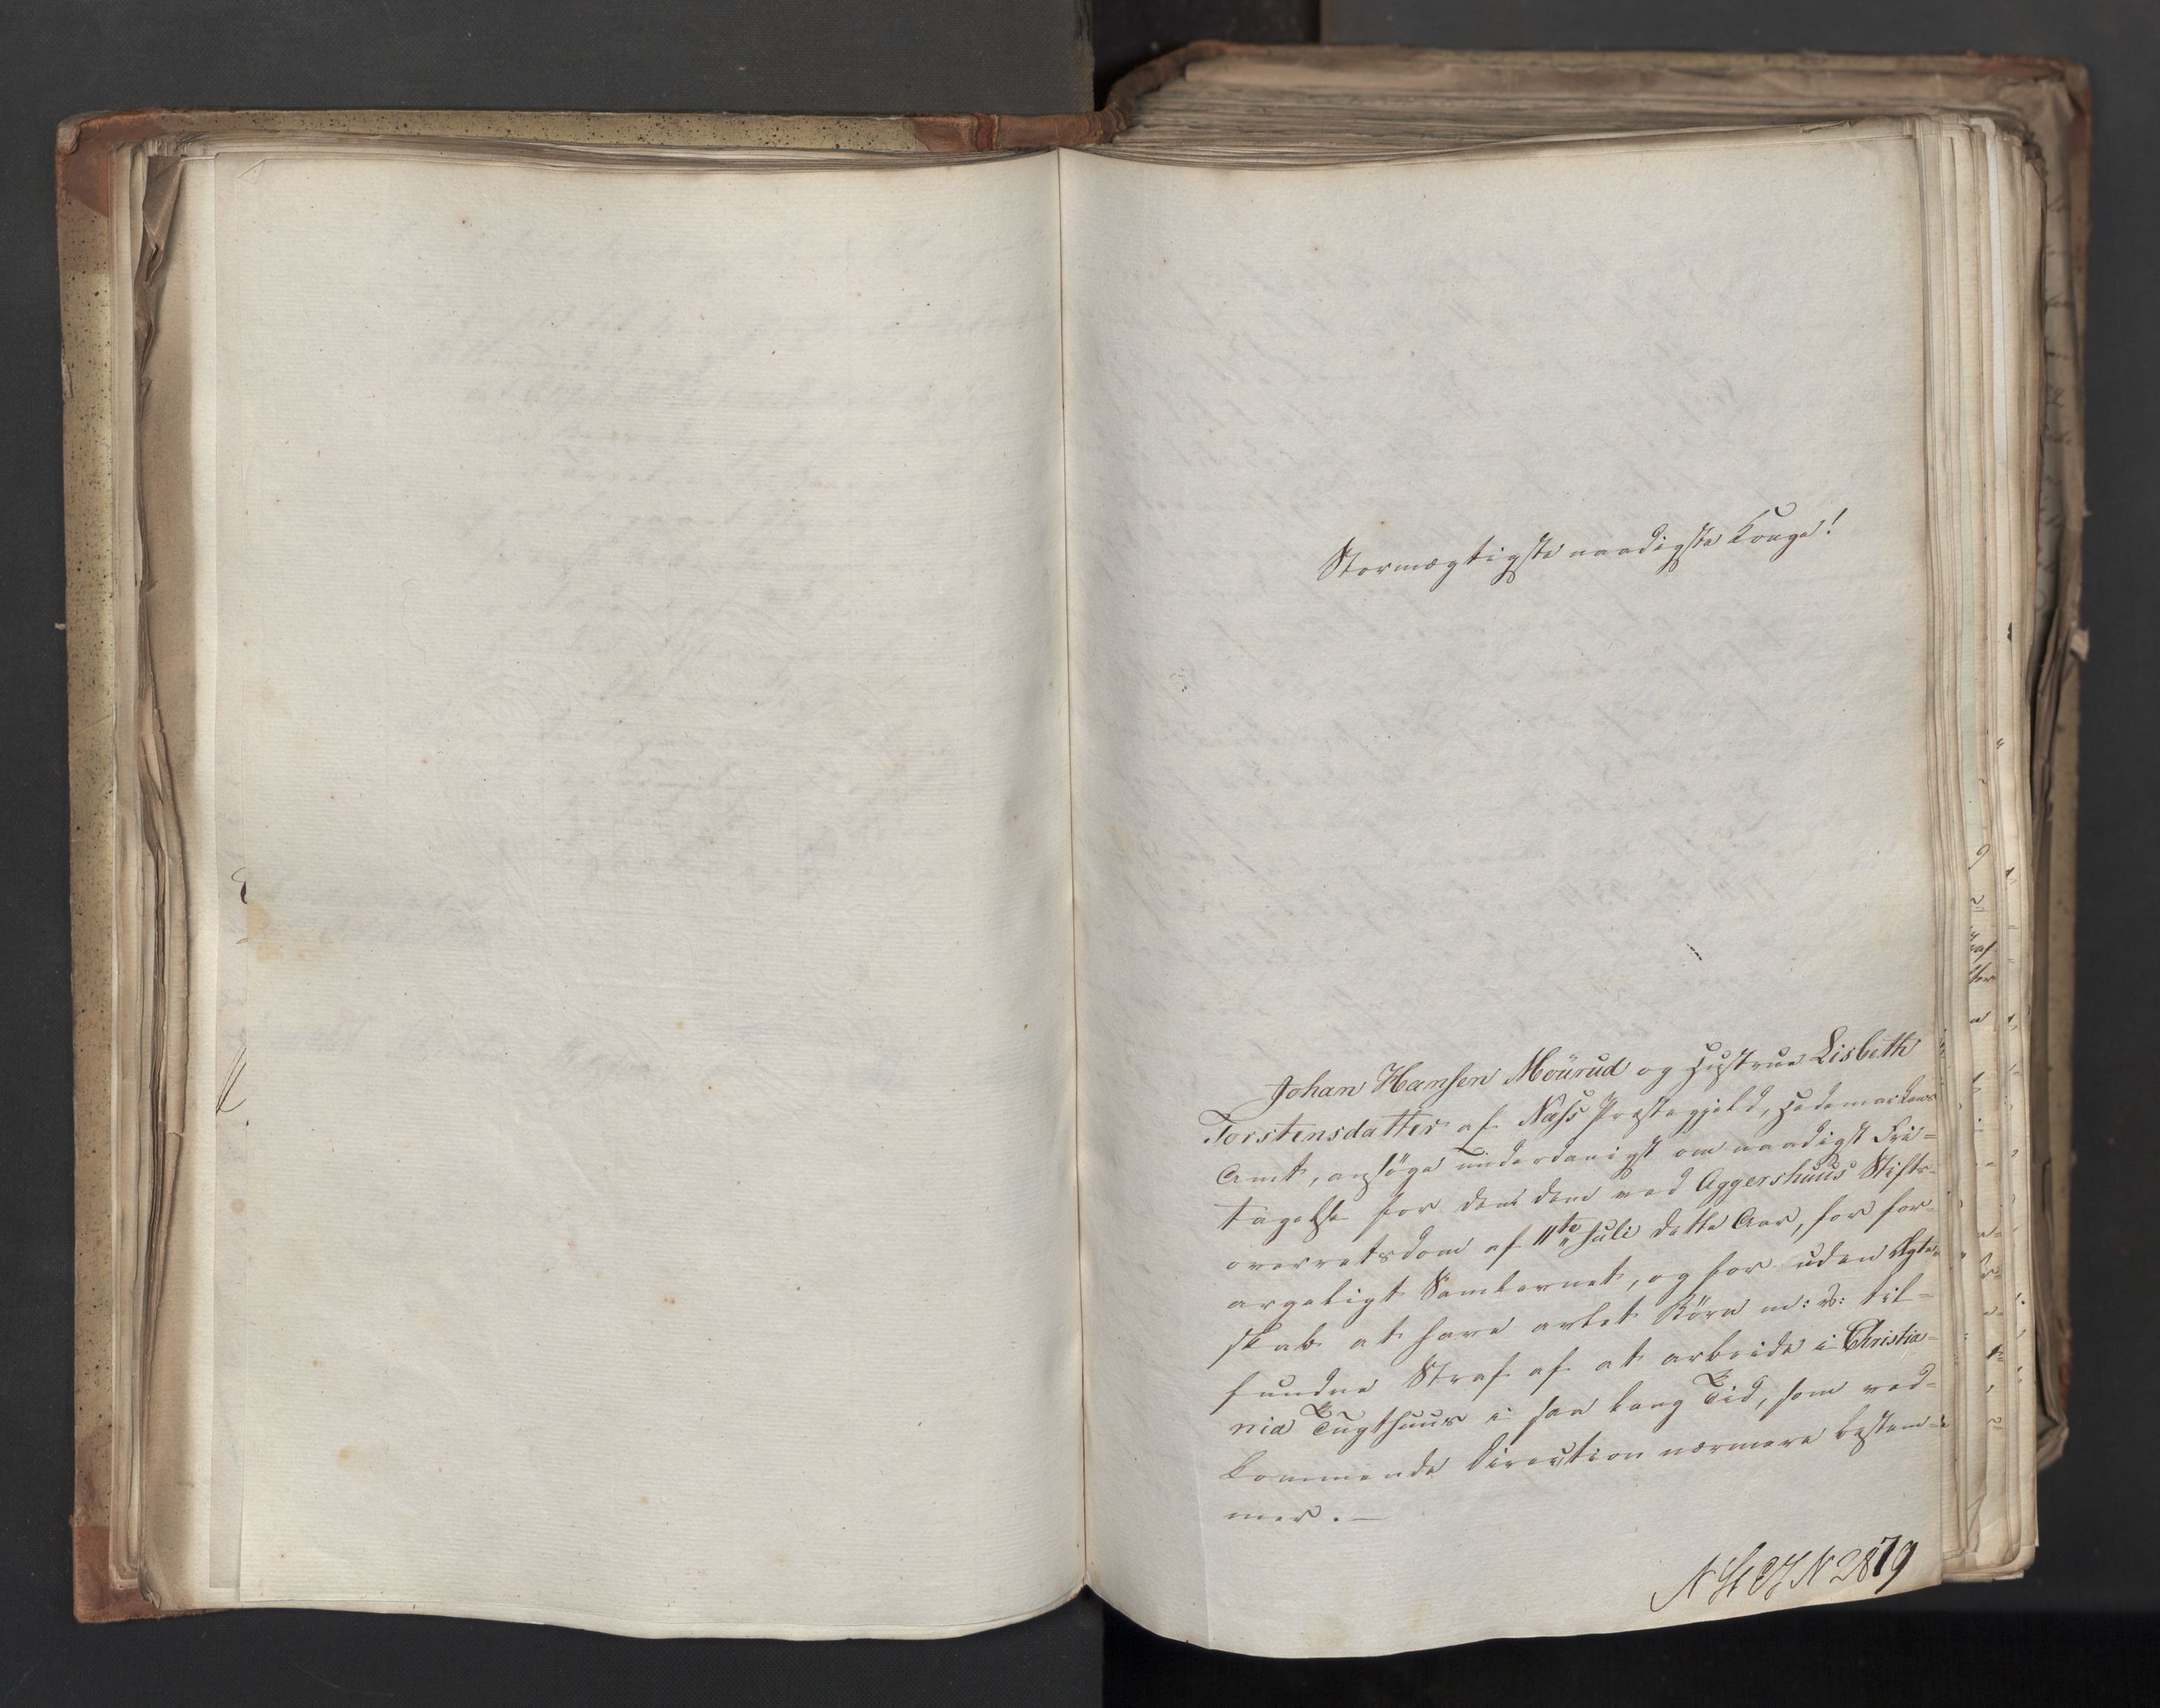 Stormægtigste naadigste Konge!
Johan Hansen Moürud og Hustrue Lisbeth
Torstensdatter af Næss Præstegjeld, Hedemarkens
Amt, ansøge underdanigst om naadigst Fri-
tagelse for den dem ved Aggershuus Stifts-
overretsdom af 11te Juli dette Aar, for for-
argeligt Samlevnet, og for uden Ægte-
skab at have avlet Börn m: v: til-
fundne Straf af at arbeide i Christia-
nia Tugthuus i saa lang Tid, som ved-
kommende Direction nærmere bestem-
mer. —
N 2879